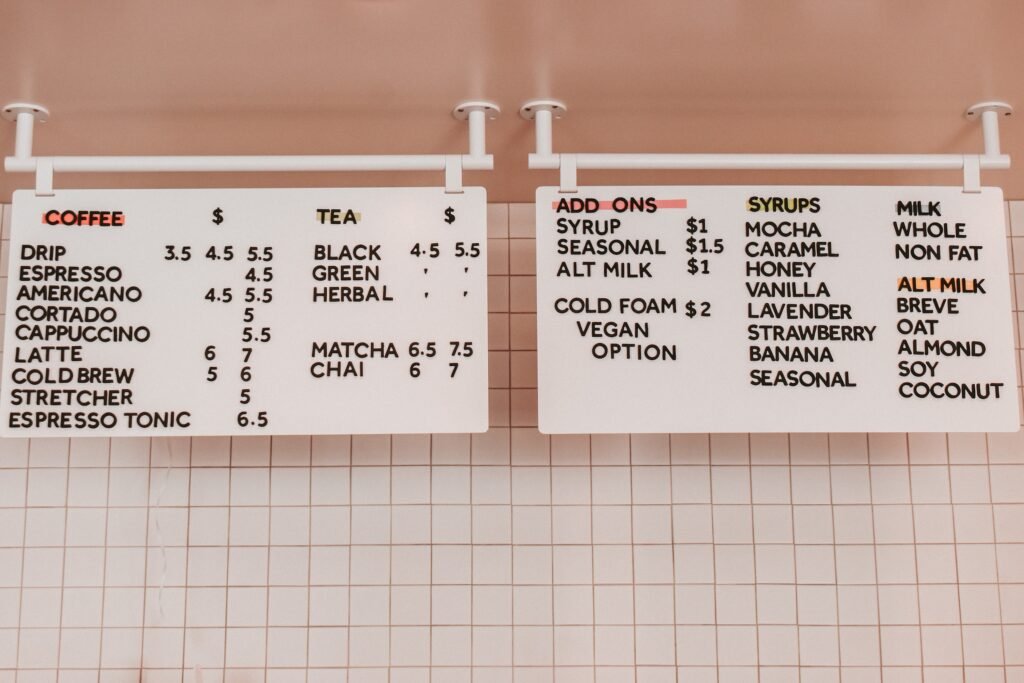 COFFEE $
DRIP 3.5 4.5 5.5
ESPRESSO 4.5
AMERICANO 4.5 5.5
CORTADO 5
CAPPUCCINO 5.5
LATTE 6 7
COLD BREW 5 6
STRETCHER 5
ESPRESSO TONIC 6.5
TEA $
BLACK 4.5 5.5
GREEN ' '
HERBAL ' '
MATCHA 6.5 7.5
CHAI 6 7
ADD ONS
SYRUP $1
SEASONAL $1.5
ALT MILK $1
COLD FOAM $2
VEGAN
OPTION
SYRUPS
MOCHA
CARAMEL
HONEY
VANILLA
LAVENDER
STRAWBERRY
BANANA
SEASONAL
MILK
WHOLE
NON FAT
ALT MILK
BREVE
OAT
ALMOND
SOY
COCONUT